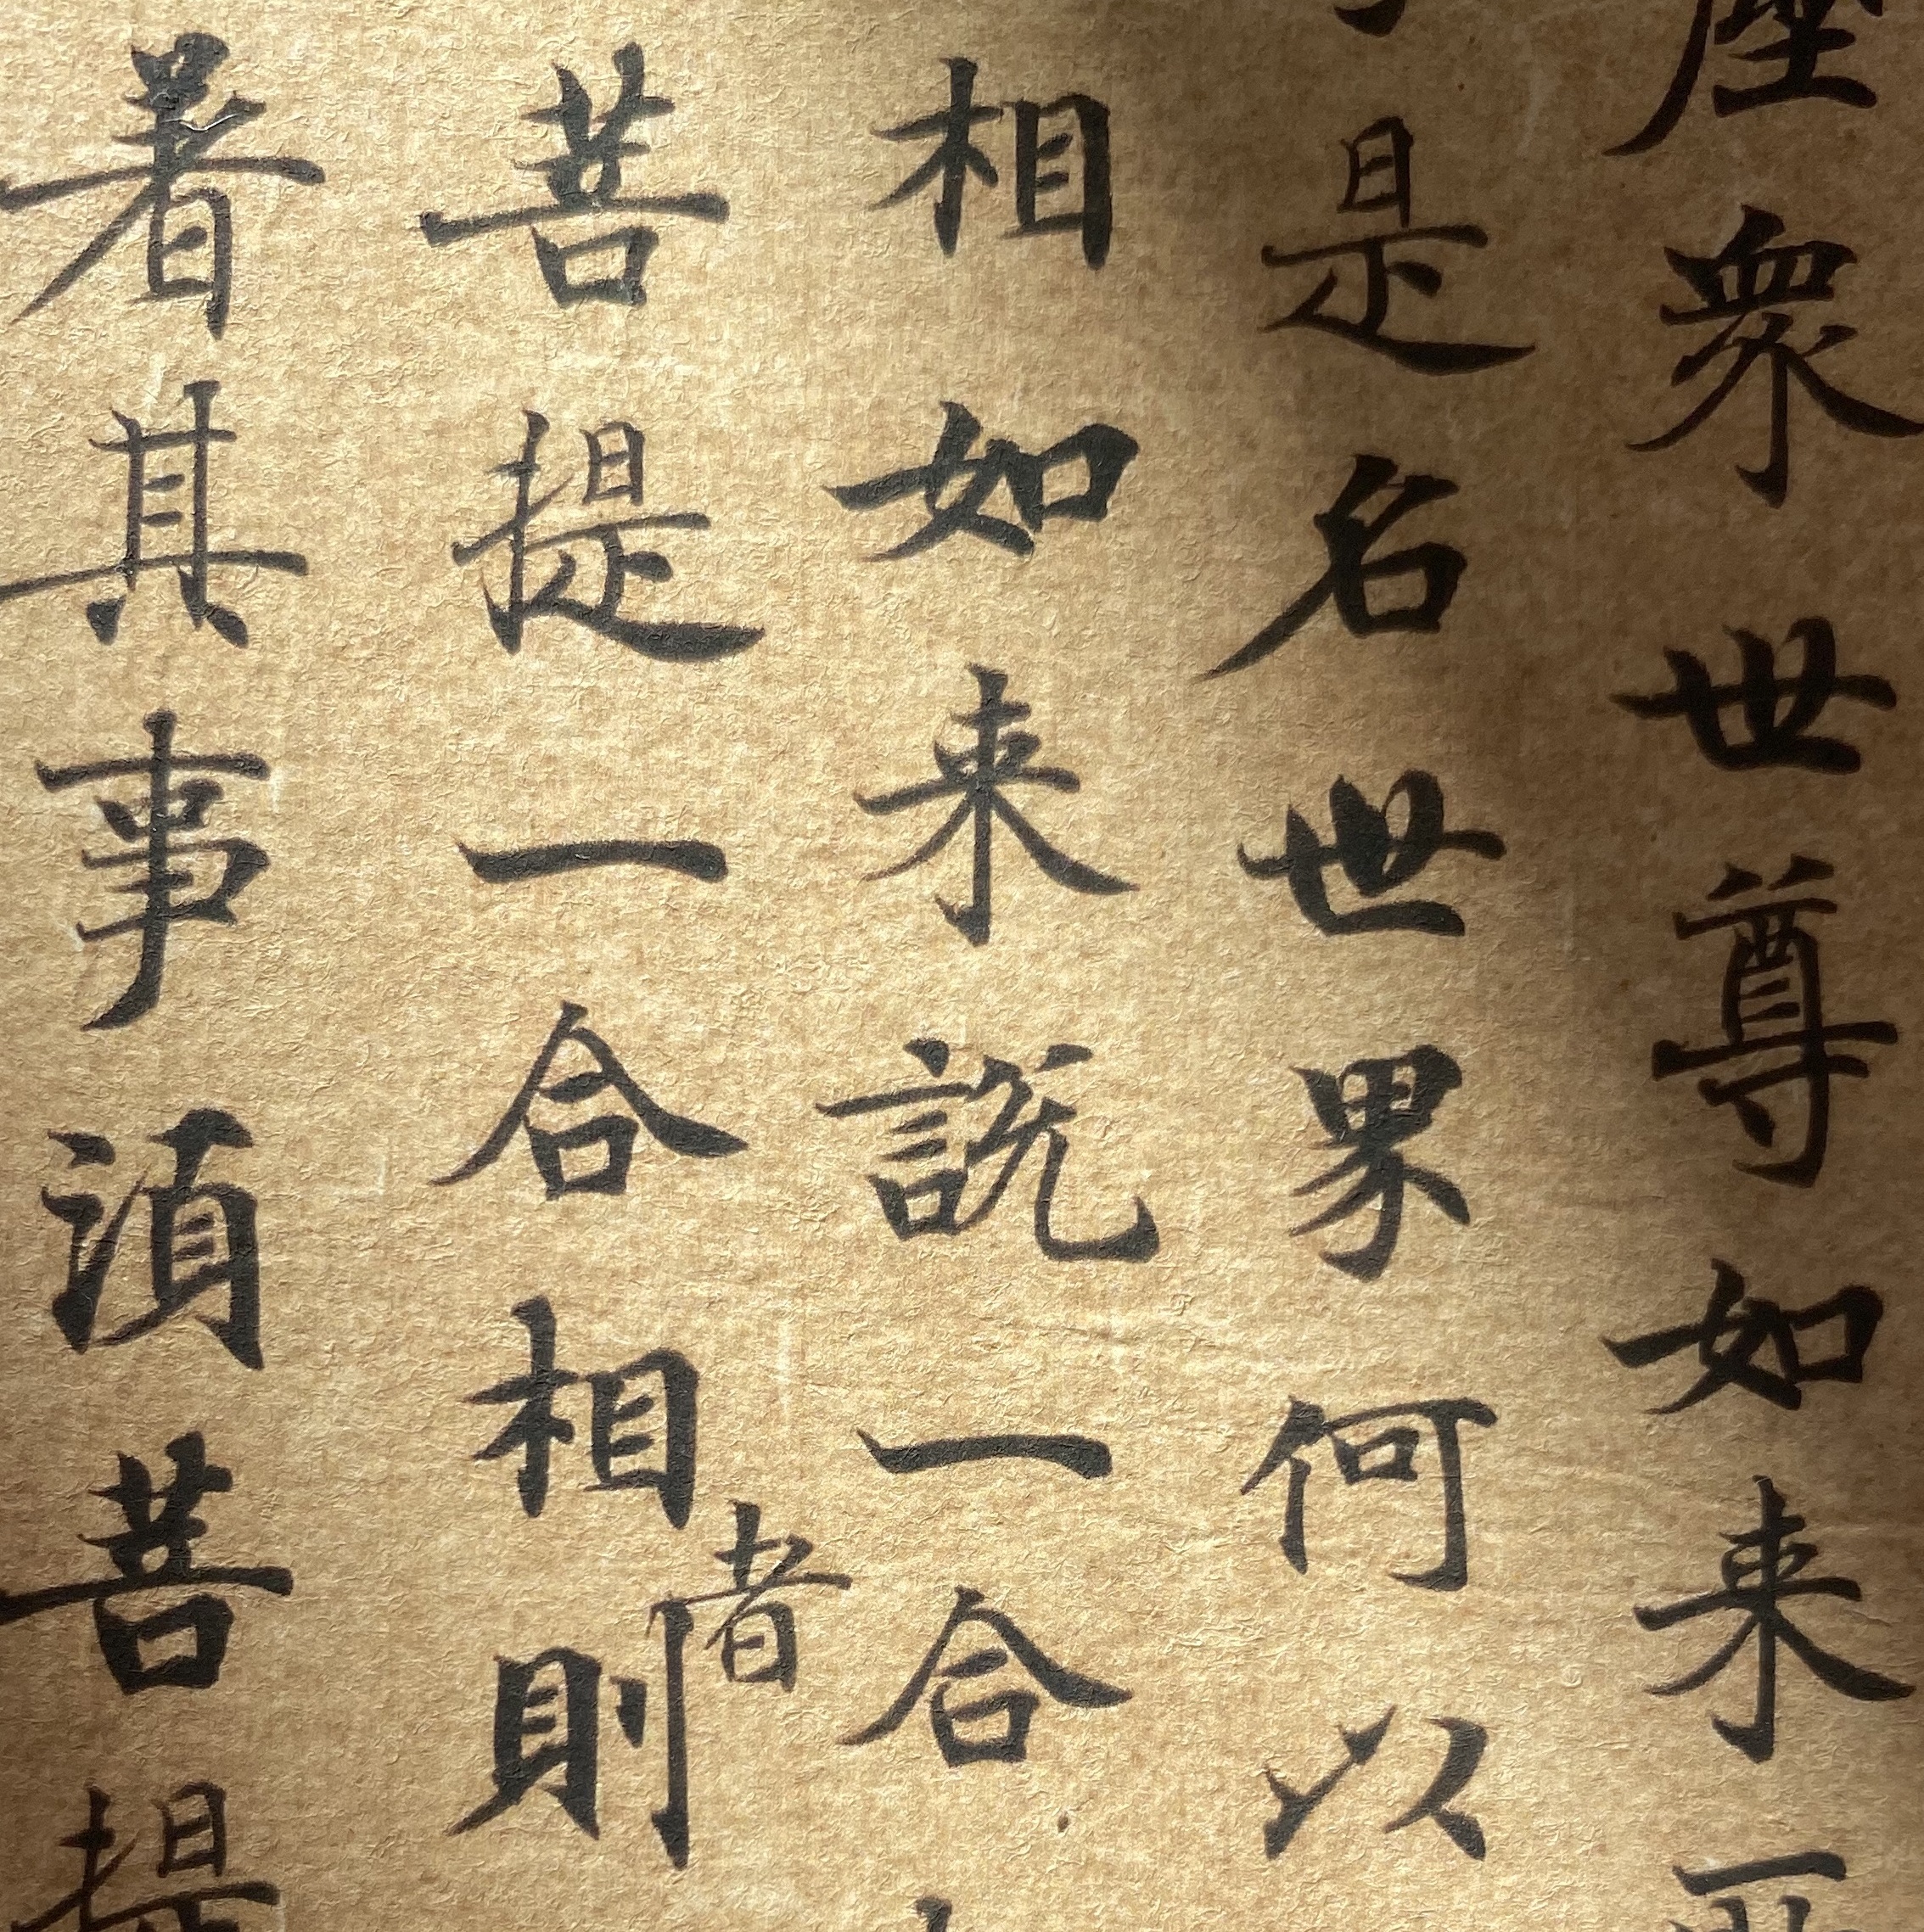 塵衆世尊如来
是名世界何以
相如来説一合
菩提一合相者則
著其事須菩提